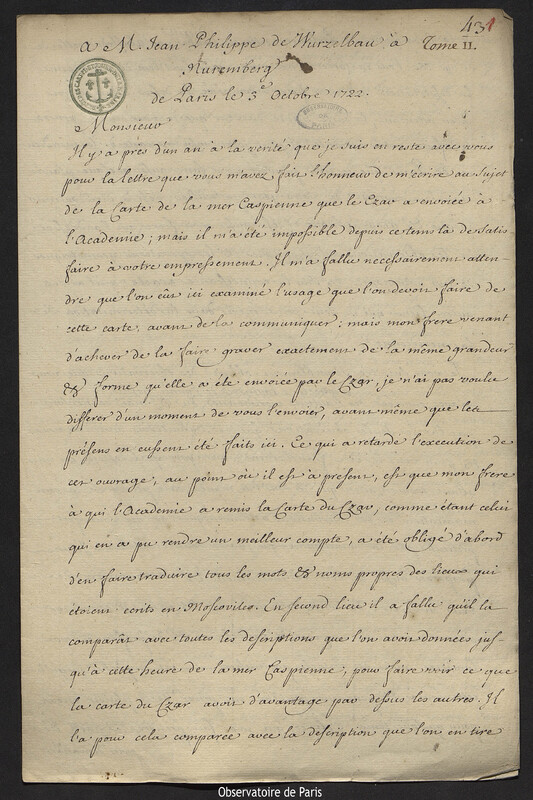 431
A M. Jean Philippe de Wurzelbau à Tome II.
Nuremberg
de Paris le 3e Octobre 1722.
Monsieur
Il y a près d'un an à la verité que je suis en reste avec vous
pour la lettre que vous m'avez fait l'honneur de m'écrire au sujet
de la Carte de la mer Caspienne que le Czar a envoiée à
l'Academie; mais il m'a été impossible depuis ce tems là de satis-
faire à votre empressement. Il m'a fallu necessairement atten-
dre que l'on eût ici examiné l'usage que l'on devoit faire de
cette carte, avant de la communiquer; mais mon frere venant
d'achever de la faire graver exactement de la même grandeur
& forme qu'elle a été envoiée par le Czar, je n'ai pas voulu
differer d'un moment de vous l'envoier, avant même que les
présens en eussent été faits ici. Ce qui a retardé l'execution de
cet ouvrage, au point où il est à présent, est que mon frere
à qui l'Academie a remis la Carte du Czar, comme étant celui
qui en a pu rendre un meilleur compte, a été obligé d'abord
d'en faire traduire tous les mots & noms propres des lieux qui
étoient ecrits en Moscovites. En second lieu il a fallu qu'il la
comparât avec toutes les descriptions que l'on avoit données jus-
qu'à cette heure de la mer Caspienne, pour faire voir ce que
la carte du Czar avoit d'avantage par dessus les autres. Il
l'a pour cela comparée avec la description que l'on en tire
Observatoire de Paris